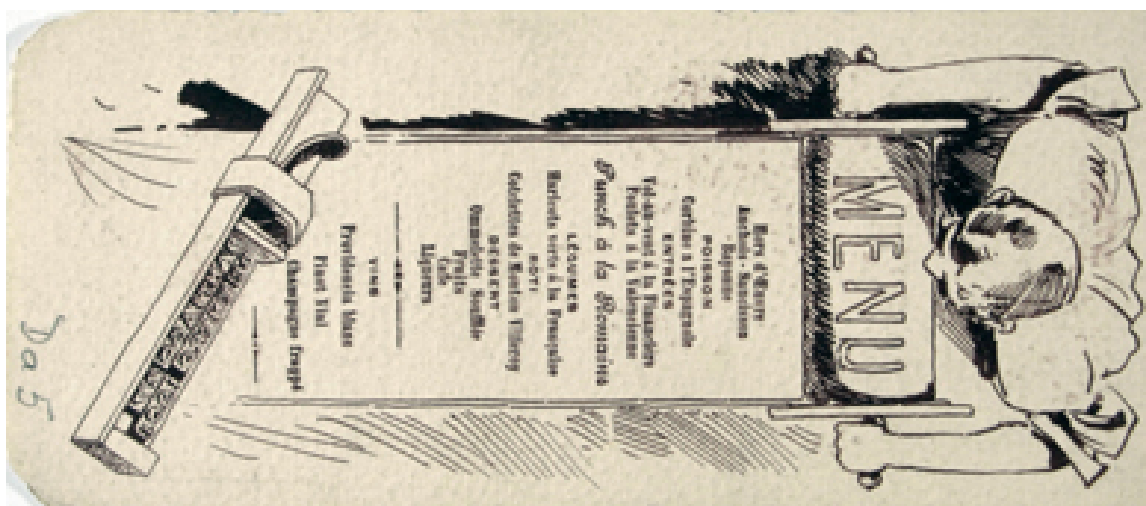 MENU
Hors d'Œuvre
Anchois - Saucisson
Bayonne
POISSON
Corbine a l'Espagnole
ENTRÉES
Vol-au-vent à la Financière
Poulets à la Valencienne
Punch à la Romaine
LÉGUMES
Haricots verts à la Française
ROTI
Cotelettes de Mouton Villeroy
DESSERT
Omelette Soufflée
Fruits
Café
Liqueurs
VINS
Providencia blanc
Pinot Vial
Champagne frappé
Da5